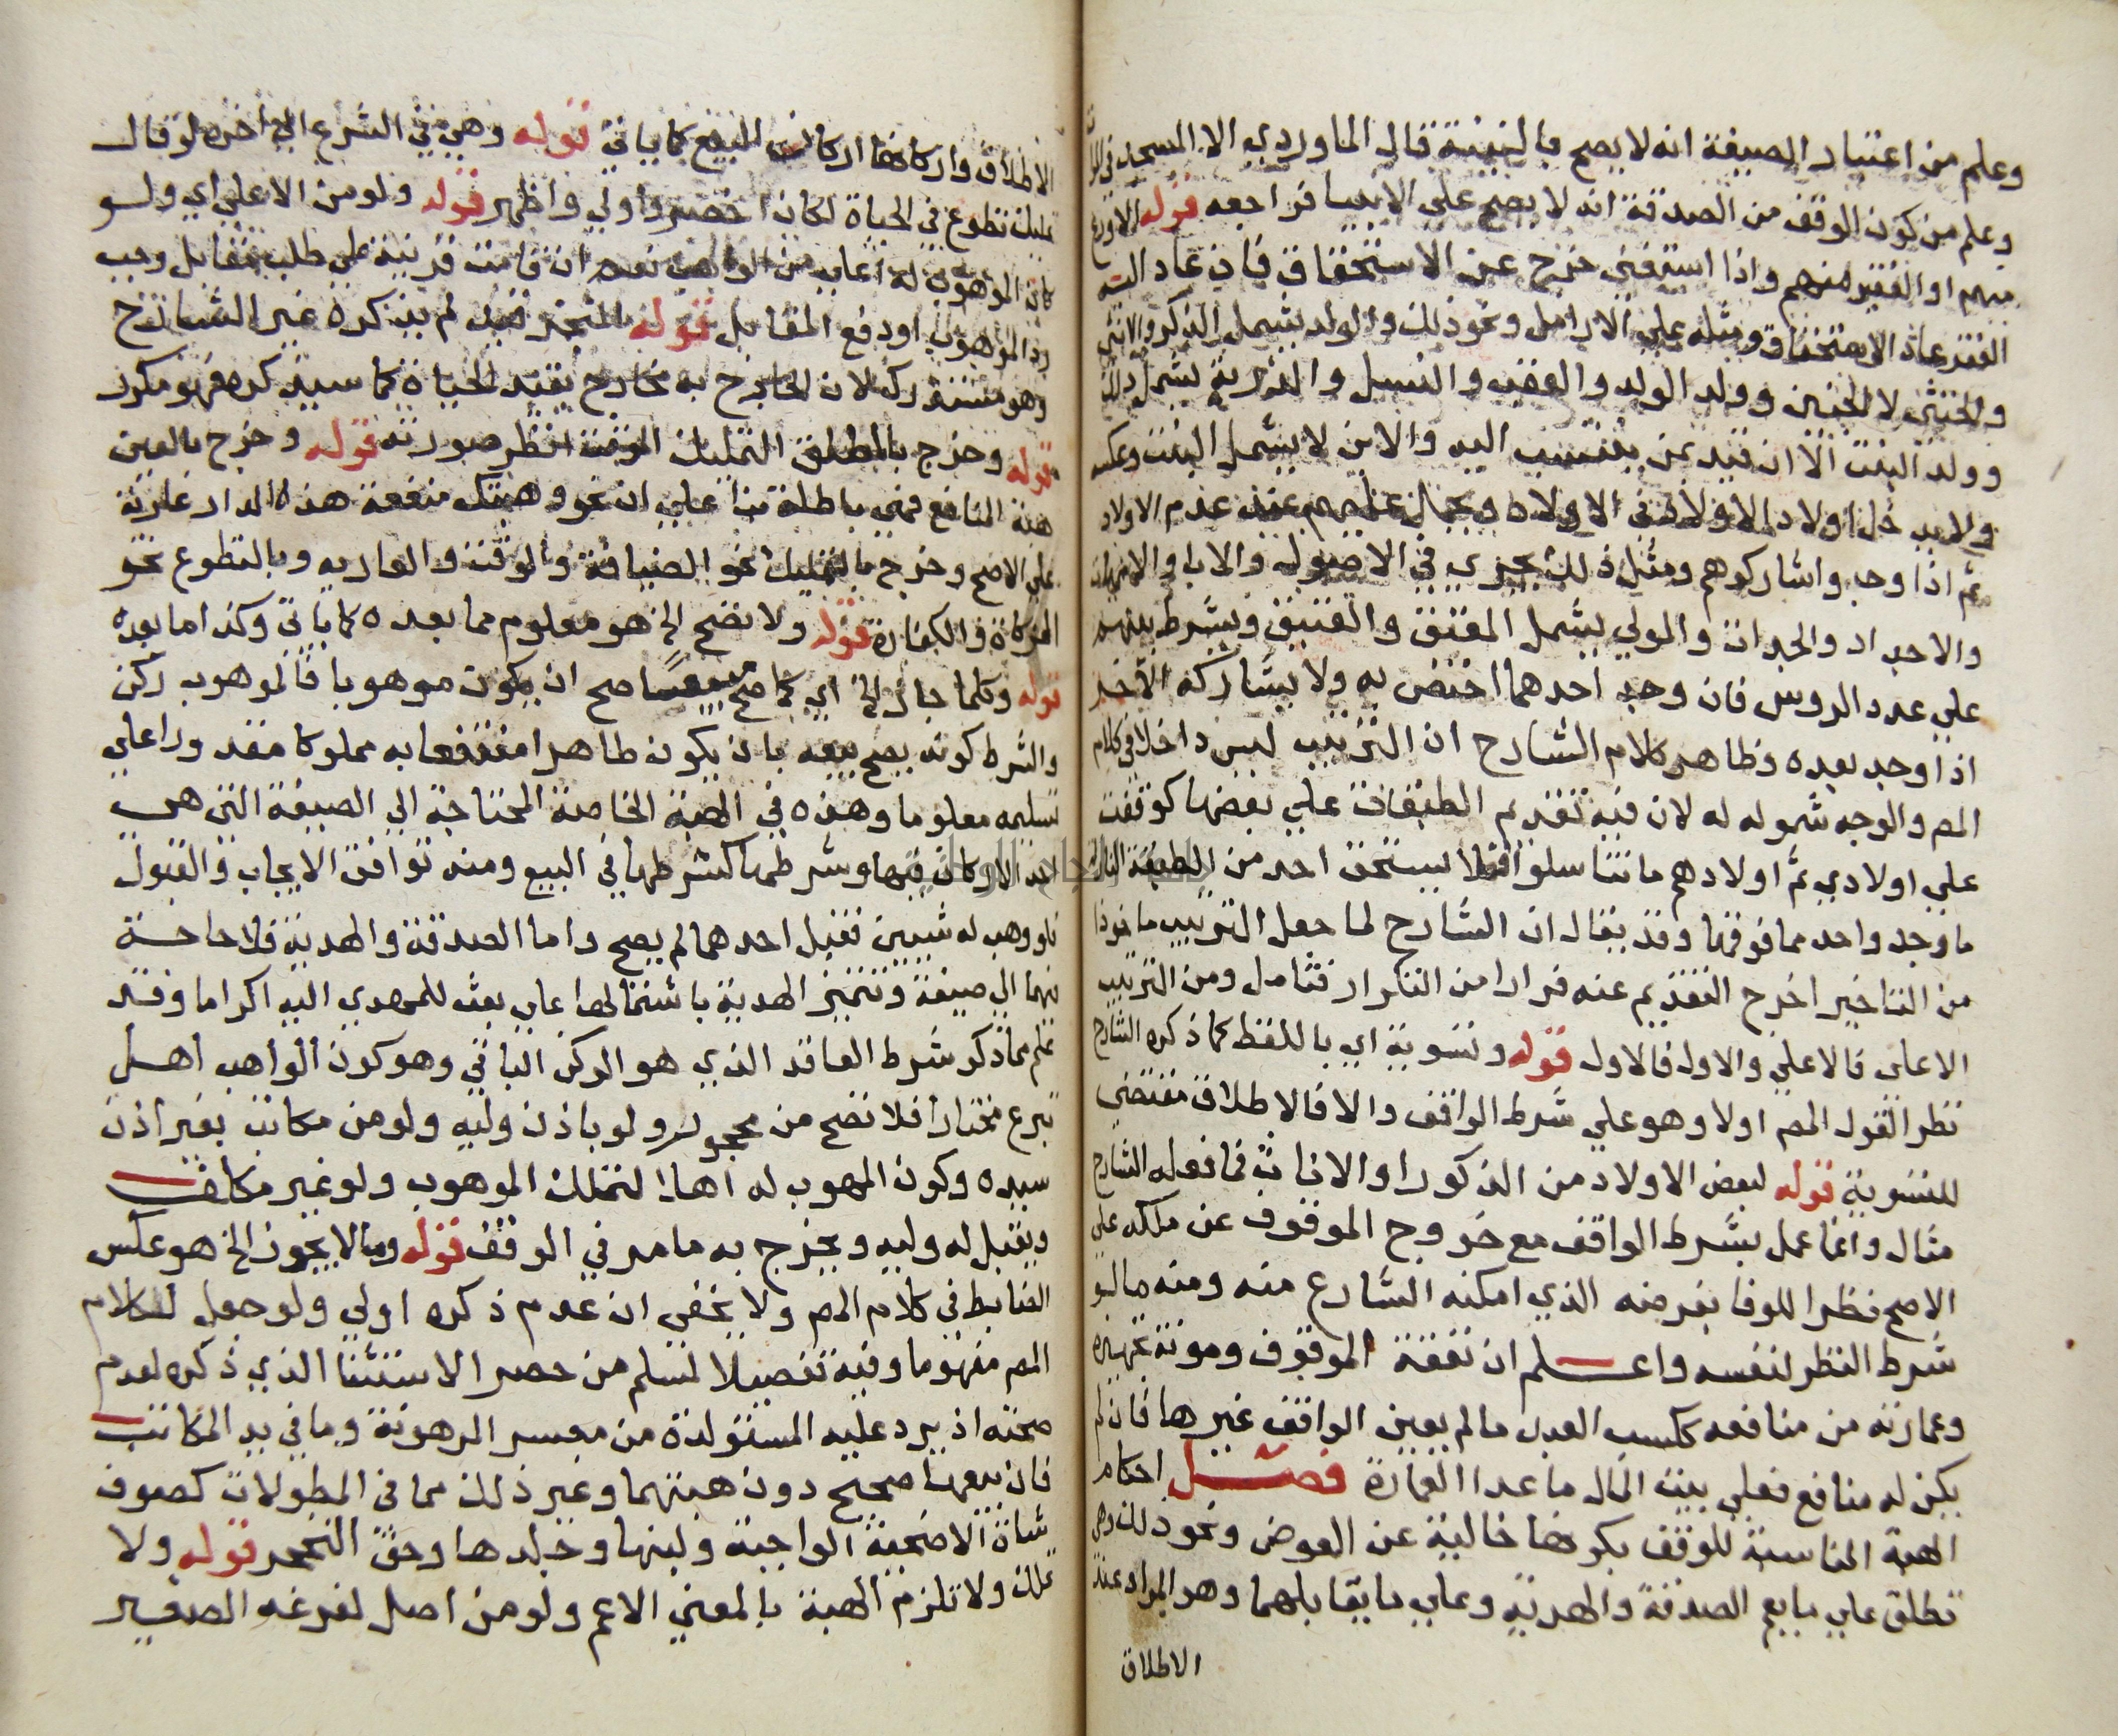 وعلم من اعتبار الصيغة انه لا يصح بالنية قال الماوردي الا المسجد
وعلم من كون الوقف من الصدقة انه لا يصح على الانبيا فراجعه قوله
منهم او الفقير منهم واذا استغنى خرج عن الاستحقاق فان عاد اليه
الفقر عاد الاستحقاق ومثله على الارامل ونحو ذلك والولد يشمل الذكر والانثى
والخنثى لا الجنين وولد الولد والعقب والنسل والذرية يشمل ذلك
وولد البنت الا ان قيد بمن ينتسب اليه والابن لا يشمل البنت وعكسه
ولا يدخل اولاد الاولاد في الاولاد ويحمل عليهم عند عدم الاولاد
ثم اذا وجدوا شاركوهم ومثل ذلك يجري في الاصول والابا والامهات
والاجداد والجدات والمولي يشمل المعتق والعتيق ويشرط بينهم
علي عدد الروس فان وجد احدهما اختص به ولا يشاركه الآخر
اذا وجد بعده وظاهر كلام الشارح ان الترتيب ليس داخلا في كلام
المص والوجه شموله له لان فيه تقديم الطبقات على بعضها كوقفت
علي اولادي ثم اولادهم ما تناسلوا فلا يستحق احد من الطبقة النازلة
ما وجد واحد مما فوقها وقد يقال ان الشارح لما جعل الترتيب ماخوذا
من التاخير اخرج التقديم عنه فرارا من التكرار فتامل ومن الترتيب
الاعلى فالاعلي والاول فالاول قوله وتسوية اي باللفظ كما ذكره الشارح
نظرا لقول المص اولا وهو علي شرط الواقف والا فالاطلاق مقتضى
للتسوية قوله لبعض الاولاد من الذكور او الاناث فما فعله الشارح
مثال وانما عمل بشرط الواقف مع خروج الموقوف عن ملكه على
الاصح نظرا للوفا بغرضه الذي امكنه الشارع منه ومنه ما لو
شرط النظر لنفسه واعلم ان نفقة الموقوف ومونة تجهيزه
وعمارته من منافعه ككسب العبد ما لم يعين الواقف غيرها فان لم
يكن له منافع فعلي بيت المال ما عدا العمارة فصل احكام
الهبة المناسبة للوقف بكونها خالية عن العوض ونحو ذلك وهي
تطلق علي ما يعم الصدقة والهدية وعلي ما يقابلهما وهو المراد عند
الاطلاق
الاطلاق واركانها اركان البيع كما ياتي قوله وهي في الشرع الي آخره لو قال
تمليك تطوع في الحياة لكان اخصر واولي واظهر قوله ولو من الاعلي اي ولو
كان الموهوب له اعلي من الواهب نعم ان قامت قرينة علي طلب مقابل وجب
رد الموهوب او دفع المقابل قوله المنجز قيد لم يذكره غير الشارح
وهو مستدرك لان الخارج به خارج بقيد الحياة كما سيذكره فهو مكرر
قوله وخرج بالمطلق التمليك الموقت انظر صورته قوله وخرج بالعين
هبة المنافع فهي باطلة بنا علي ان نحو وهبتك منفعة هذه الدار عارية
على الاصح وخرج بالتمليك نحو الضيافة والوقف والعارية وبالتطوع نحو
الزكاة والكفارة قوله ولا تصح الخ هو معلوم مما بعده كما ياتي وكذا ما بعده
قوله وكلما جاز الخ اي ما صح صح ان يكون موهوبا فالموهوب ركن
والشرط كونه يصح بيعه بان يكون طاهرا منتفعا به مملوكا مقدورا علي
تسليمه معلوما وهذه في الهبة الخاصة المحتاجة الي الصيغة التي هي
احد الاركان فيها وشرطها كشرطها في البيع ومنه توافق الايجاب والقبول
فلو وهب له شيين فقبل احدهما لم يصح واما الصدقة والهدية فلا حاجة
فيهما الي صيغة وتتميز الهدية باشتمالها علي بعث للمهدي اليه اكراما وقد
علم مما ذكر شرط العاقد الذي هو الركن الباقي وهو كون الواهب اهل
تبرع مختارا فلا تصح من محجور ولو باذن وليه ولو من مكاتب بغير اذن
سيده وكون الموهوب له اهلا لتملك الموهوب ولو غير مكلف
ويقبل له وليه ويخرج به ما مر في الوقف قوله وما لا يجوز الخ هو عكس
الضابط في كلام المص ولا يخفى ان عدم ذكره اولي ولو جعل لكلام
المص مفهوما وفيه تفصيلا لسلم من حصر الاستثنا الذي ذكره لعدم
صحته اذ يرد عليه المستولدة من معسر المرهونة وما في يد المكاتب
فان بيعهما صحيح دون هبتهما وغير ذلك مما في المطولات كصوف
شاة الاضحية الواجبة ولبنها وجلدها وحق التحجر قوله ولا
تملك ولا تلزم الهبة بالمعني الاعم ولو من اصل لفرعه الصغير